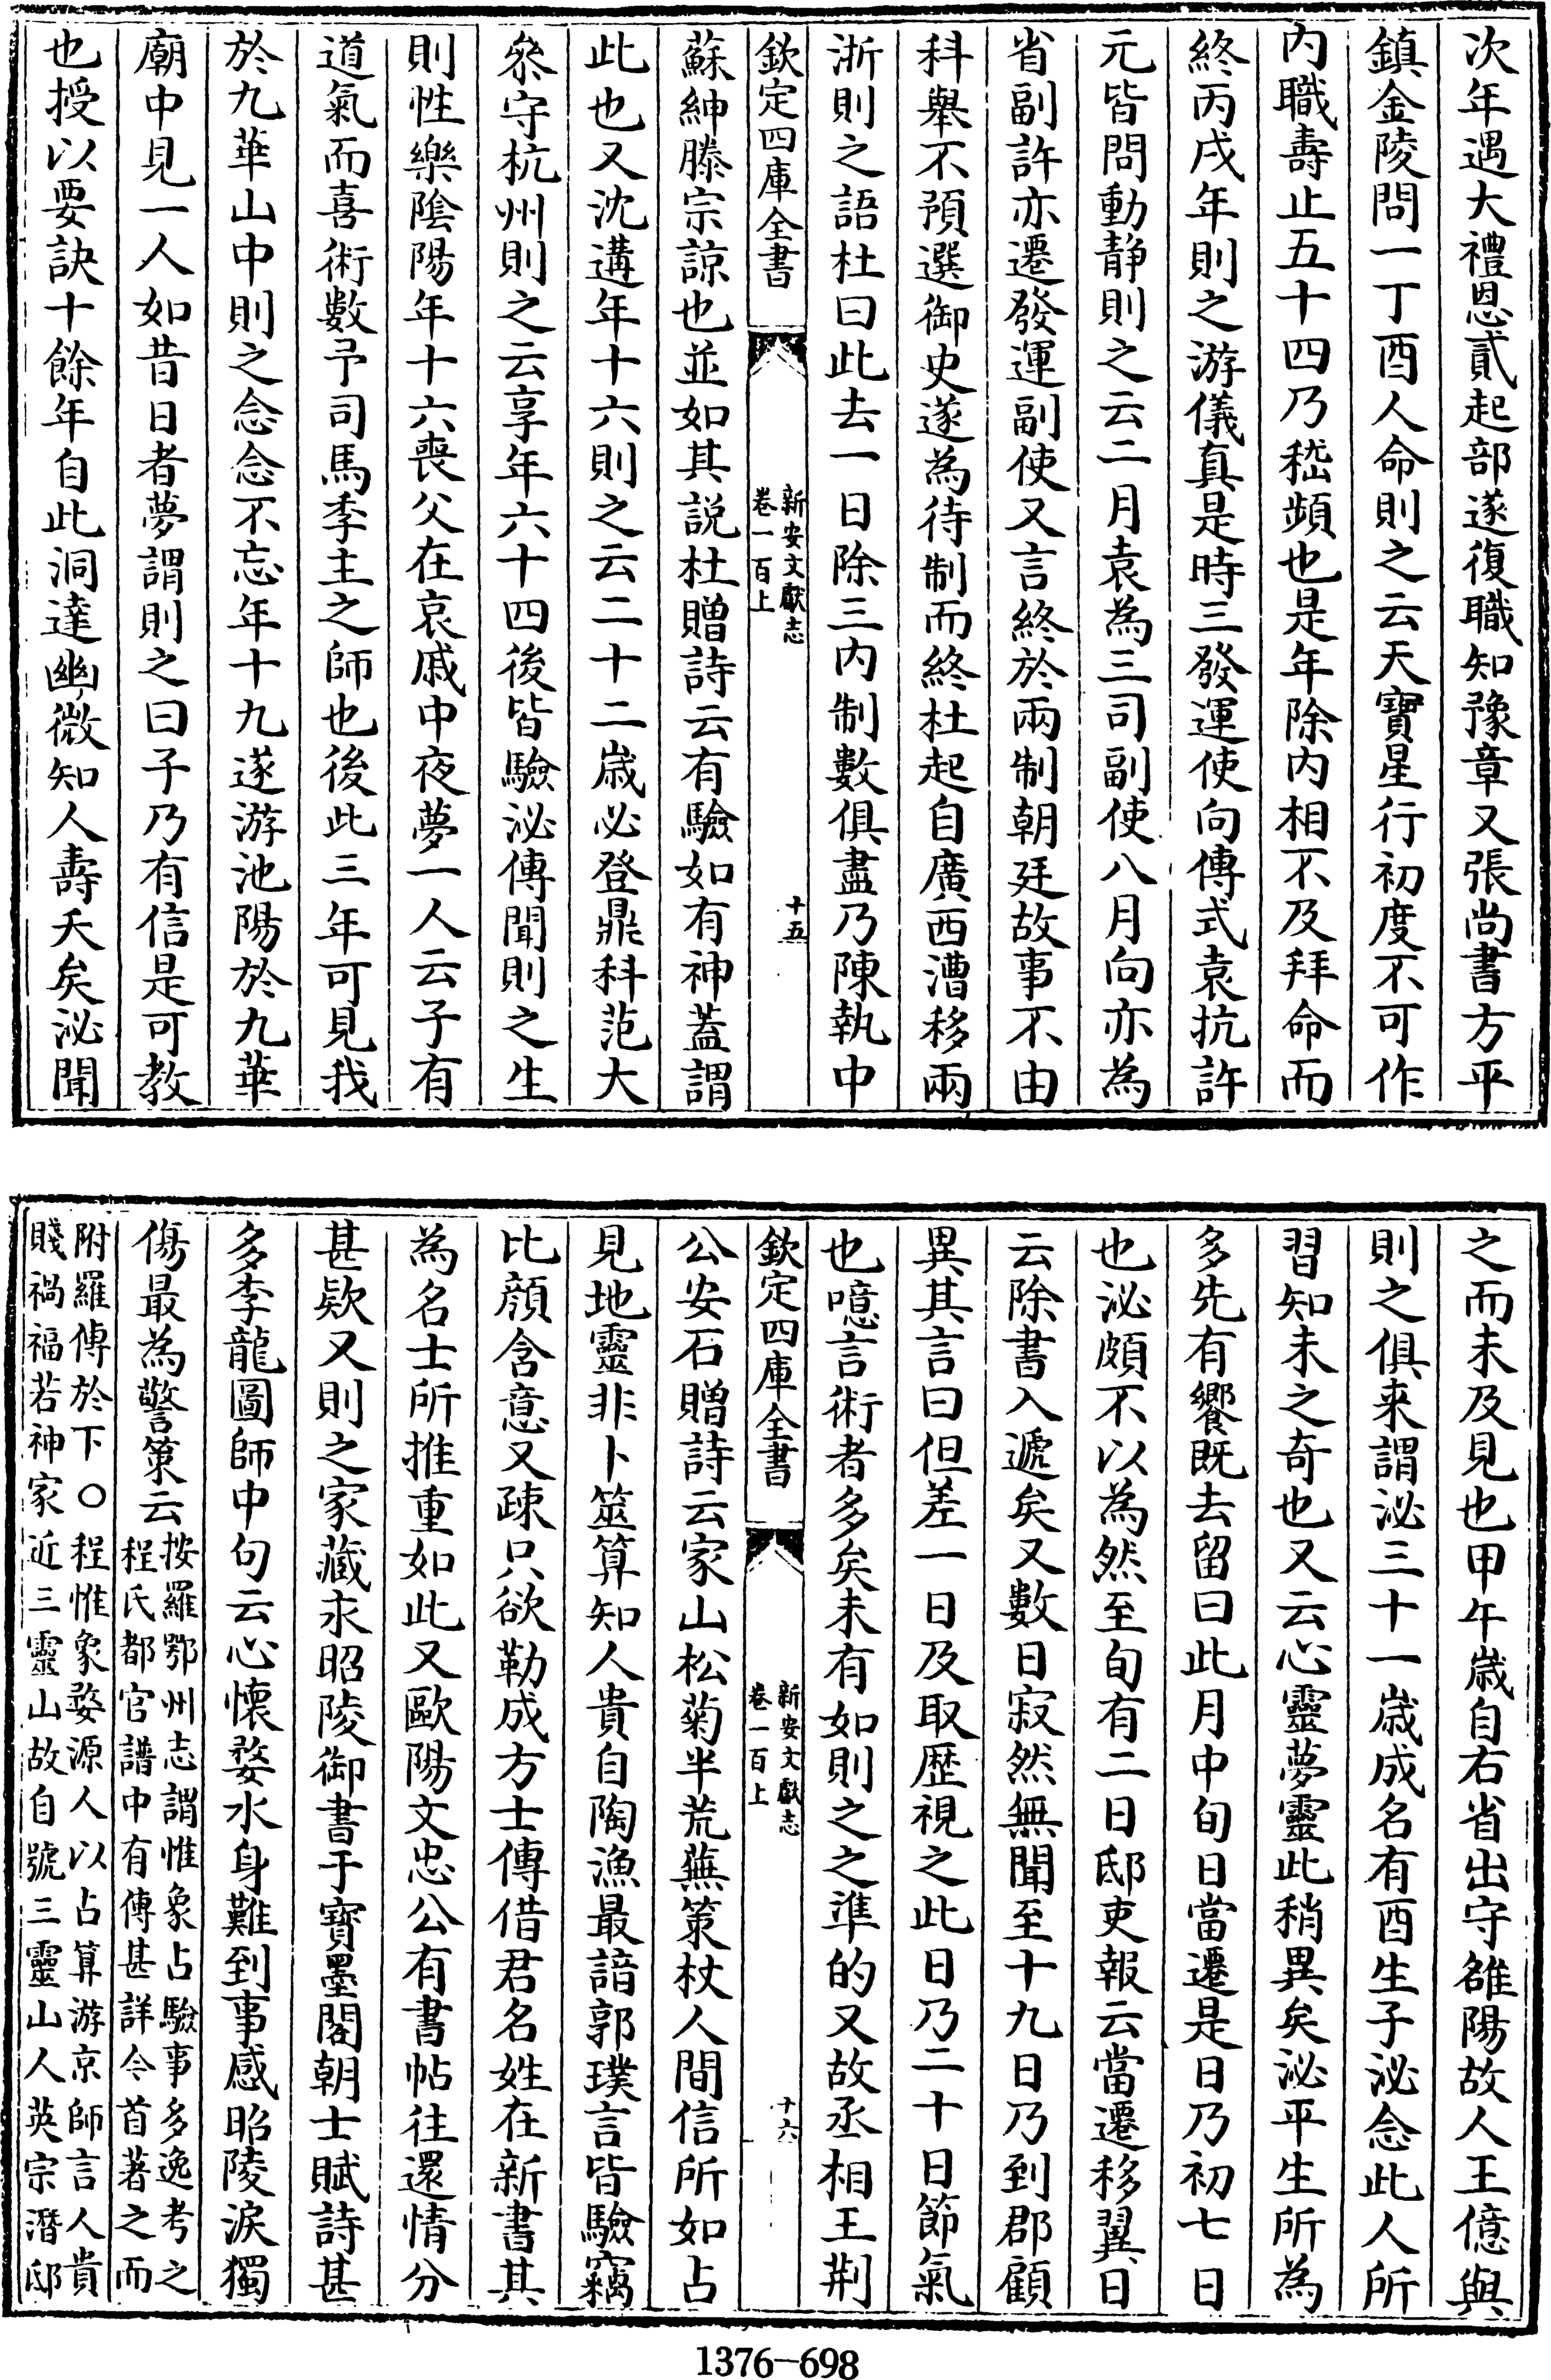 次年遇大禮恩貳起部遂復職知豫章又張尚書方平
鎮金陵問一丁酉人命則之云天寶星行初度不可作
内職壽止五十四乃嵇頻也是年除内相不及拜命而
終丙戌年則之游儀真是時三發運使向傳式袁抗許
元皆問動静則之云二月袁為三司副使八月向亦為
省副許亦遷發運副使又言終於兩制朝廷故事不由
科舉不預選御史遂為待制而終杜起自廣西漕移兩
浙則之語杜曰此去一日除三内制數俱盡乃陳執中
欽定四庫全書
新安文獻志
卷一百上
十五
蘇紳滕宗諒也並如其説杜贈詩云有驗如有神蓋謂
此也又沈遘年十六則之云二十二歳必登鼎科范大
叅守杭州則之云享年六十四後皆驗泌傳聞則之生
則性樂隂陽年十六喪父在哀戚中夜夢一人云子有
道氣而喜術數予司馬季主之師也後此三年可見我
於九華山中則之念念不忘年十九遂游池陽於九華
廟中見一人如昔日者夢謂則之曰子乃有信是可教
也授以要訣十餘年自此洞達幽微知人壽夭矣泌聞
之而未及見也甲午歳自右省出守雒陽故人王億與
則之俱来謂泌三十一歳成名有酉生子泌念此人所
習知未之奇也又云心靈夢靈此稍異矣泌平生所為
多先有饗既去留曰此月中旬日當遷是日乃初七日
也泌頗不以為然至旬有二日邸吏報云當遷移翼日
云除書入遞矣又數日寂然無聞至十九日乃到郡顧
異其言曰但差一日及取歴視之此日乃二十日節氣
也噫言術者多矣未有如則之之凖的又故丞相王荆
欽定四庫全書
新安文獻志
卷一百上
十六
公安石贈詩云家山松菊半荒蕪策杖人間信所如占
見地靈非卜筮算知人貴自陶漁最諳郭璞言皆驗竊
比顔含意又疎只欲勒成方士傳借君名姓在新書其
為名士所推重如此又歐陽文忠公有書帖往還情分
甚欵又則之家藏永昭陵御書于寳墨閣朝士賦詩甚
多李龍圖師中句云心懷婺水身難到事感昭陵淚獨
傷最為警策云
按羅鄂州志謂惟象占驗事多逸考之
程氏都官譜中有傳甚詳今首著之而
附羅傳於下○程惟象婺源人以占算游京師言人貴
賤禍福若神家近三靈山故自號三靈山人英宗潛邸
1376—698